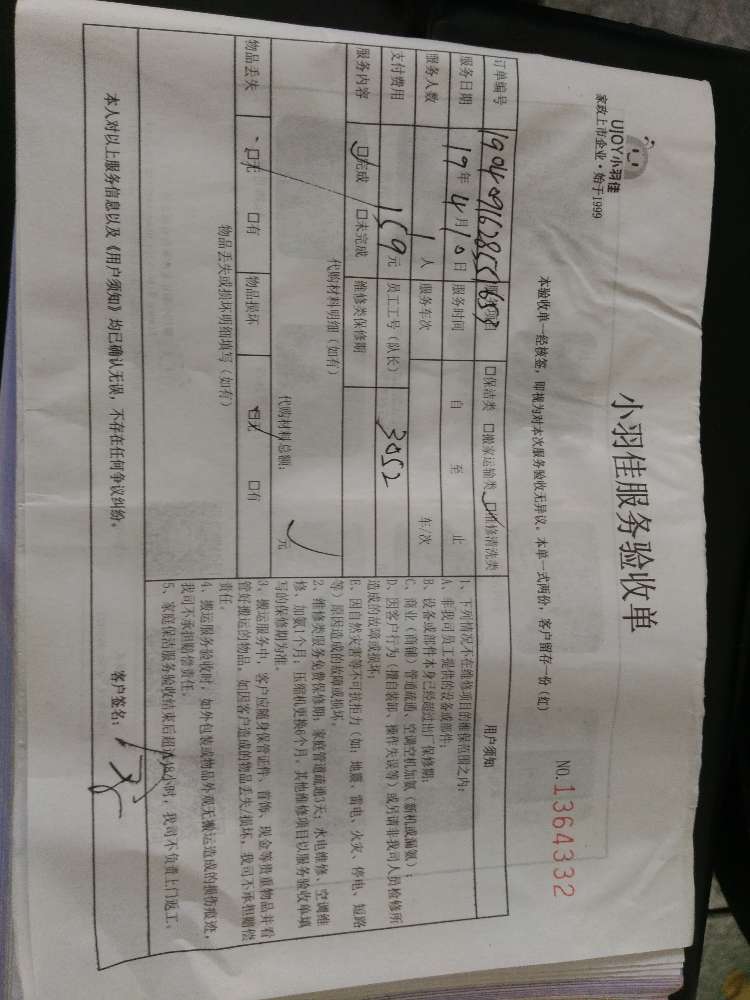 UJOY小羽佳
家政上市企业·始于1999
小羽佳服务验收单
NO.1364332
本验收单一经核签，即视为对本次服务验收无异议。本单一式两份，客户留存一份（红）
订单编号
服务项目 口保洁类 口搬家运输类 口维修清洗类
服务日期 19年4月10日 服务时间 自 至 止
服务人数 1人 服务车次 车/次
支付费用 159元 员工工号（队长） 3052
服务内容 口完成 口未完成 维修类保修期
代购材料明细（如有）
代购材料总额： 元
物品丢失 口无 口有 物品损坏 口无 口有
物品丢失或损坏明细填写（如有）
用户须知
1、下列情况不在维修项目的维保范围之内：
A、非我司员工提供的设备或部件；
B、设备或部件本身已经超过出厂保修期；
C、商业（商铺）管道疏通、空调空机加氨（新机或漏氨）；
D、因客户行为（擅自装卸、操作失误等）或另请非我司人员检修所
造成的故障或损坏；
E、因自然灾害等不可抗拒力（如：地震、雷电、火灾、停电、短路
等）原因造成的故障或损坏。
2、维修类服务免费保修期：家庭管道疏通3天；水电维修、空调维
修、加氨1个月；压缩机更换6个月。其他维修项目以服务验收单填
写的保修期为准。
3、搬运服务中，客户应随身保管证件、首饰、现金等贵重物品并看
管好搬运的物品。如因客户造成的物品丢失/损坏，我司不承担赔偿
责任。
4、搬运服务验收时，如外包装或物品外观无搬运造成的损伤痕迹，
我司不承担赔偿责任。
5、家庭保洁服务验收结束后超过48小时，我司不负责上门返工。
本人对以上服务信息以及《用户须知》均已确认无误，不存在任何争议纠纷。
客户签名：